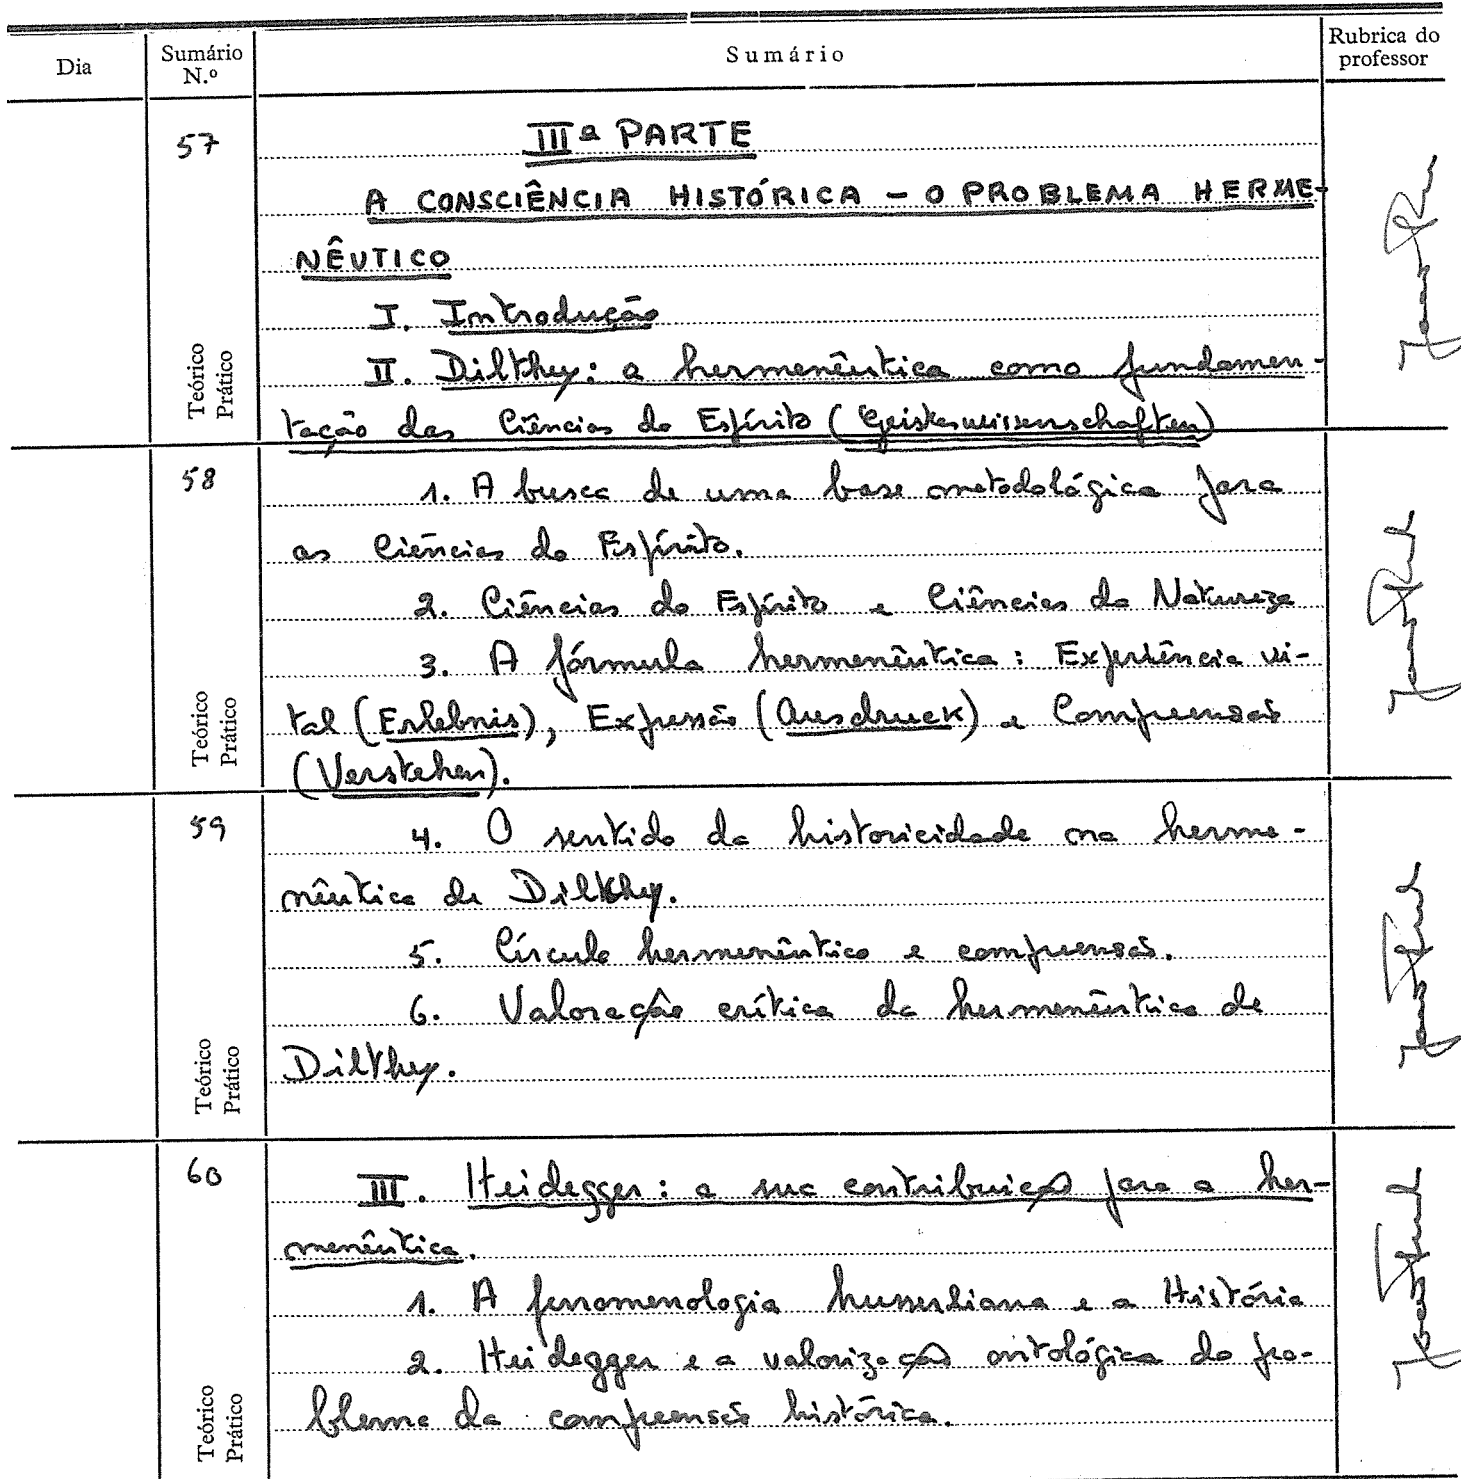 Dia
Sumário N.º
Sumário
Rubrica do professor
57
IIIª PARTE
A CONSCIÊNCIA HISTÓRICA – O PROBLEMA HERME-
NÊUTICO
I. Introdução
II. Dilthey: a hermenêutica como fundamen-
tação das Ciências do Espírito (Geisteswissenschaften)
Teórico
Prático
58
1. A busca de uma base metodológica para
as Ciências do Espírito.
2. Ciências do Espírito e Ciências da Natureza
3. A fórmula hermenêutica: Experiência vi-
tal (Erlebnis), Expressão (Ausdruck) e Compreensão
(Verstehen).
Teórico
Prático
59
4. O sentido da historicidade na herme-
nêutica de Dilthey.
5. Círculo hermenêutico e compreensão.
6. Valoração crítica da hermenêutica de
Dilthey.
Teórico
Prático
60
III. Heidegger: a sua contribuição para a her-
menêutica.
1. A fenomenologia husserliana e a História
2. Heidegger e a valorização ontológica do pro-
blema da compreensão histórica.
Teórico
Prático